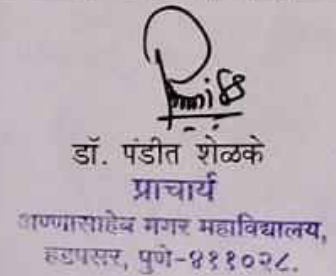 डॉ. पंडीत शेळके
प्राचार्य
अण्णासाहेब मगर महाविद्यालय,
हडपसर, पुणे-४११०२८.